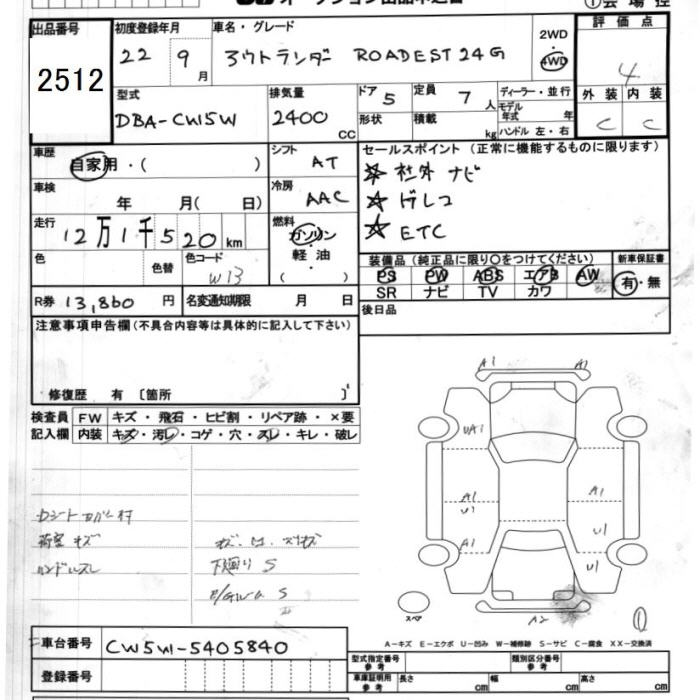 出品番号
2512
初度登録年月
22 9 月
車名・グレード
アウトランダー ROADEST 24G
2WD
4WD
評価点
4
外装 内装
C C
型式
DBA-CW5W
排気量
2400 CC
ドア 5
形状
定員 7 人
積載 kg
ディーラー・並行
モデル年式 年
ハンドル 左・右
車歴
自家用・( )
シフト
AT
車検
年 月( 日)
冷房
AAC
走行
12万1千520 km
燃料
ガソリン
・
軽油
( )
色
色替
色コード
W13
R券 13,860 円
名変通知期限 月 日
セールスポイント(正常に機能するものに限ります)
☆ 社外 ナビ
☆ ドレコ
☆ ETC
装備品(純正品に限り○をつけてください)
PS PW ABS エアB AW
SR ナビ TV カワ
新車保証書
有・無
後日品
注意事項申告欄(不具合内容等は具体的に記入して下さい)
修復歴 有 〔箇所 〕
検査員
記入欄
FW キズ・飛石・ヒビ割・リペア跡・×要
内装 キズ・汚レ・コゲ・穴・スレ・キレ・破レ
荷室 キズ
ハンドルスレ
下廻り S
A1 A1
UA1
A1
U1
A1
A1
U1
U1
A2
スペア
①
A-キズ E-エクボ U-凹み W-補修跡 S-サビ C-腐食 XX-交換済
車台番号 CW5W-5405840
登録番号
型式指定番号
参考
類別区分番号
参考
車庫証明用
参考
長さ cm 幅 cm 高さ cm